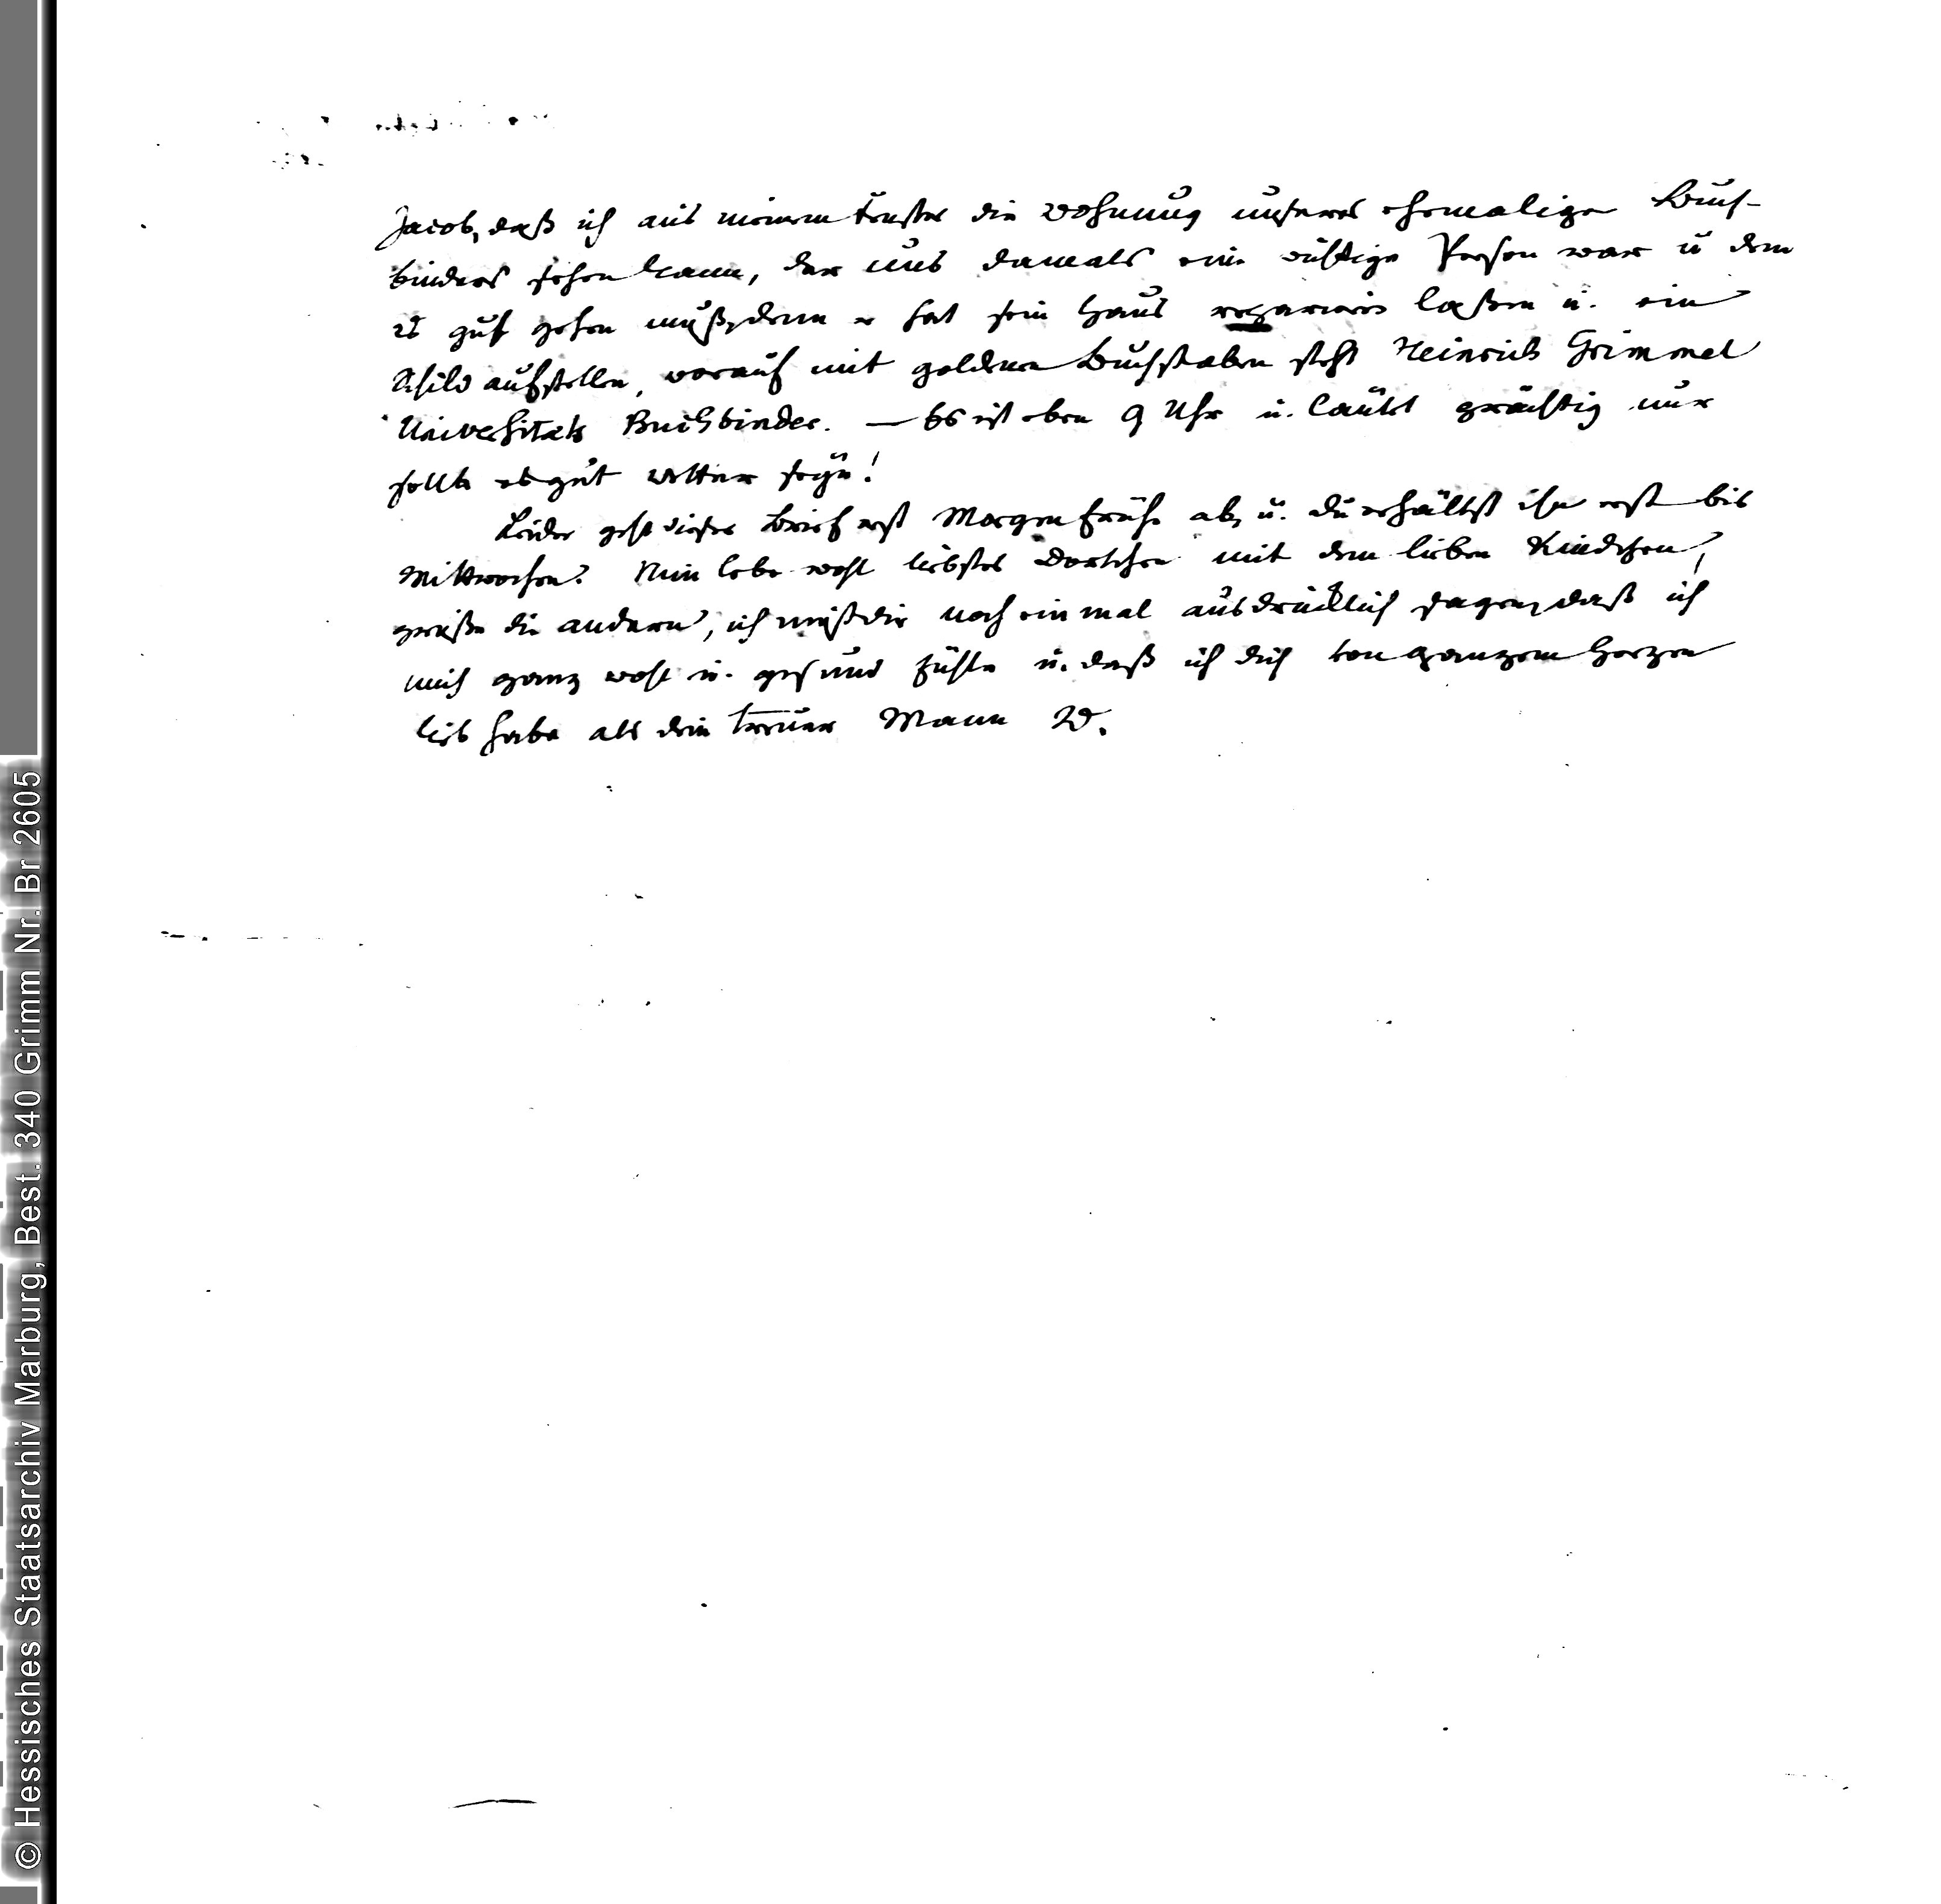 Jacob, daß ich aus meinem Fenster die Wohnung unseres ehemalige Buch-
binders sehen kann, der uns damals eine wichtige Person war u dem
es gut gehen muß, denn er hat sein Haus repariren laßen u. ein
Schild aufstellen, worauf mit goldenen Buchstaben steht Heinrich Grimmel
Universitäts Buchbinder. — Es ist eben 9 Uhr u. läutet prächtig nur
sollte es gut Wetter seyn!
Leider geht dieser Brief erst Morgen früh ab, u. du erhältst ihn erst bis
Mittwochen. Nun lebe wohl liebstes Dortchen mit dem lieben Kindchen,
grüße die andern, ich muß dir noch einmal ausdrücklich sagen, daß ich
mich ganz wohl u. gesund fühle u. daß ich dich von ganzem Herzen
lieb habe als dein treuer Mann W.
© Hessisches Staatsarchiv Marburg, Best. 340 Grimm Nr. Br 2605